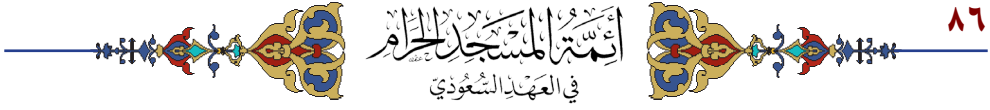 ٨٦
أَئِمَّةُ المَسْجِدِ الحَرَامِ
في العَهْدِ السُّعُوْدِيّ